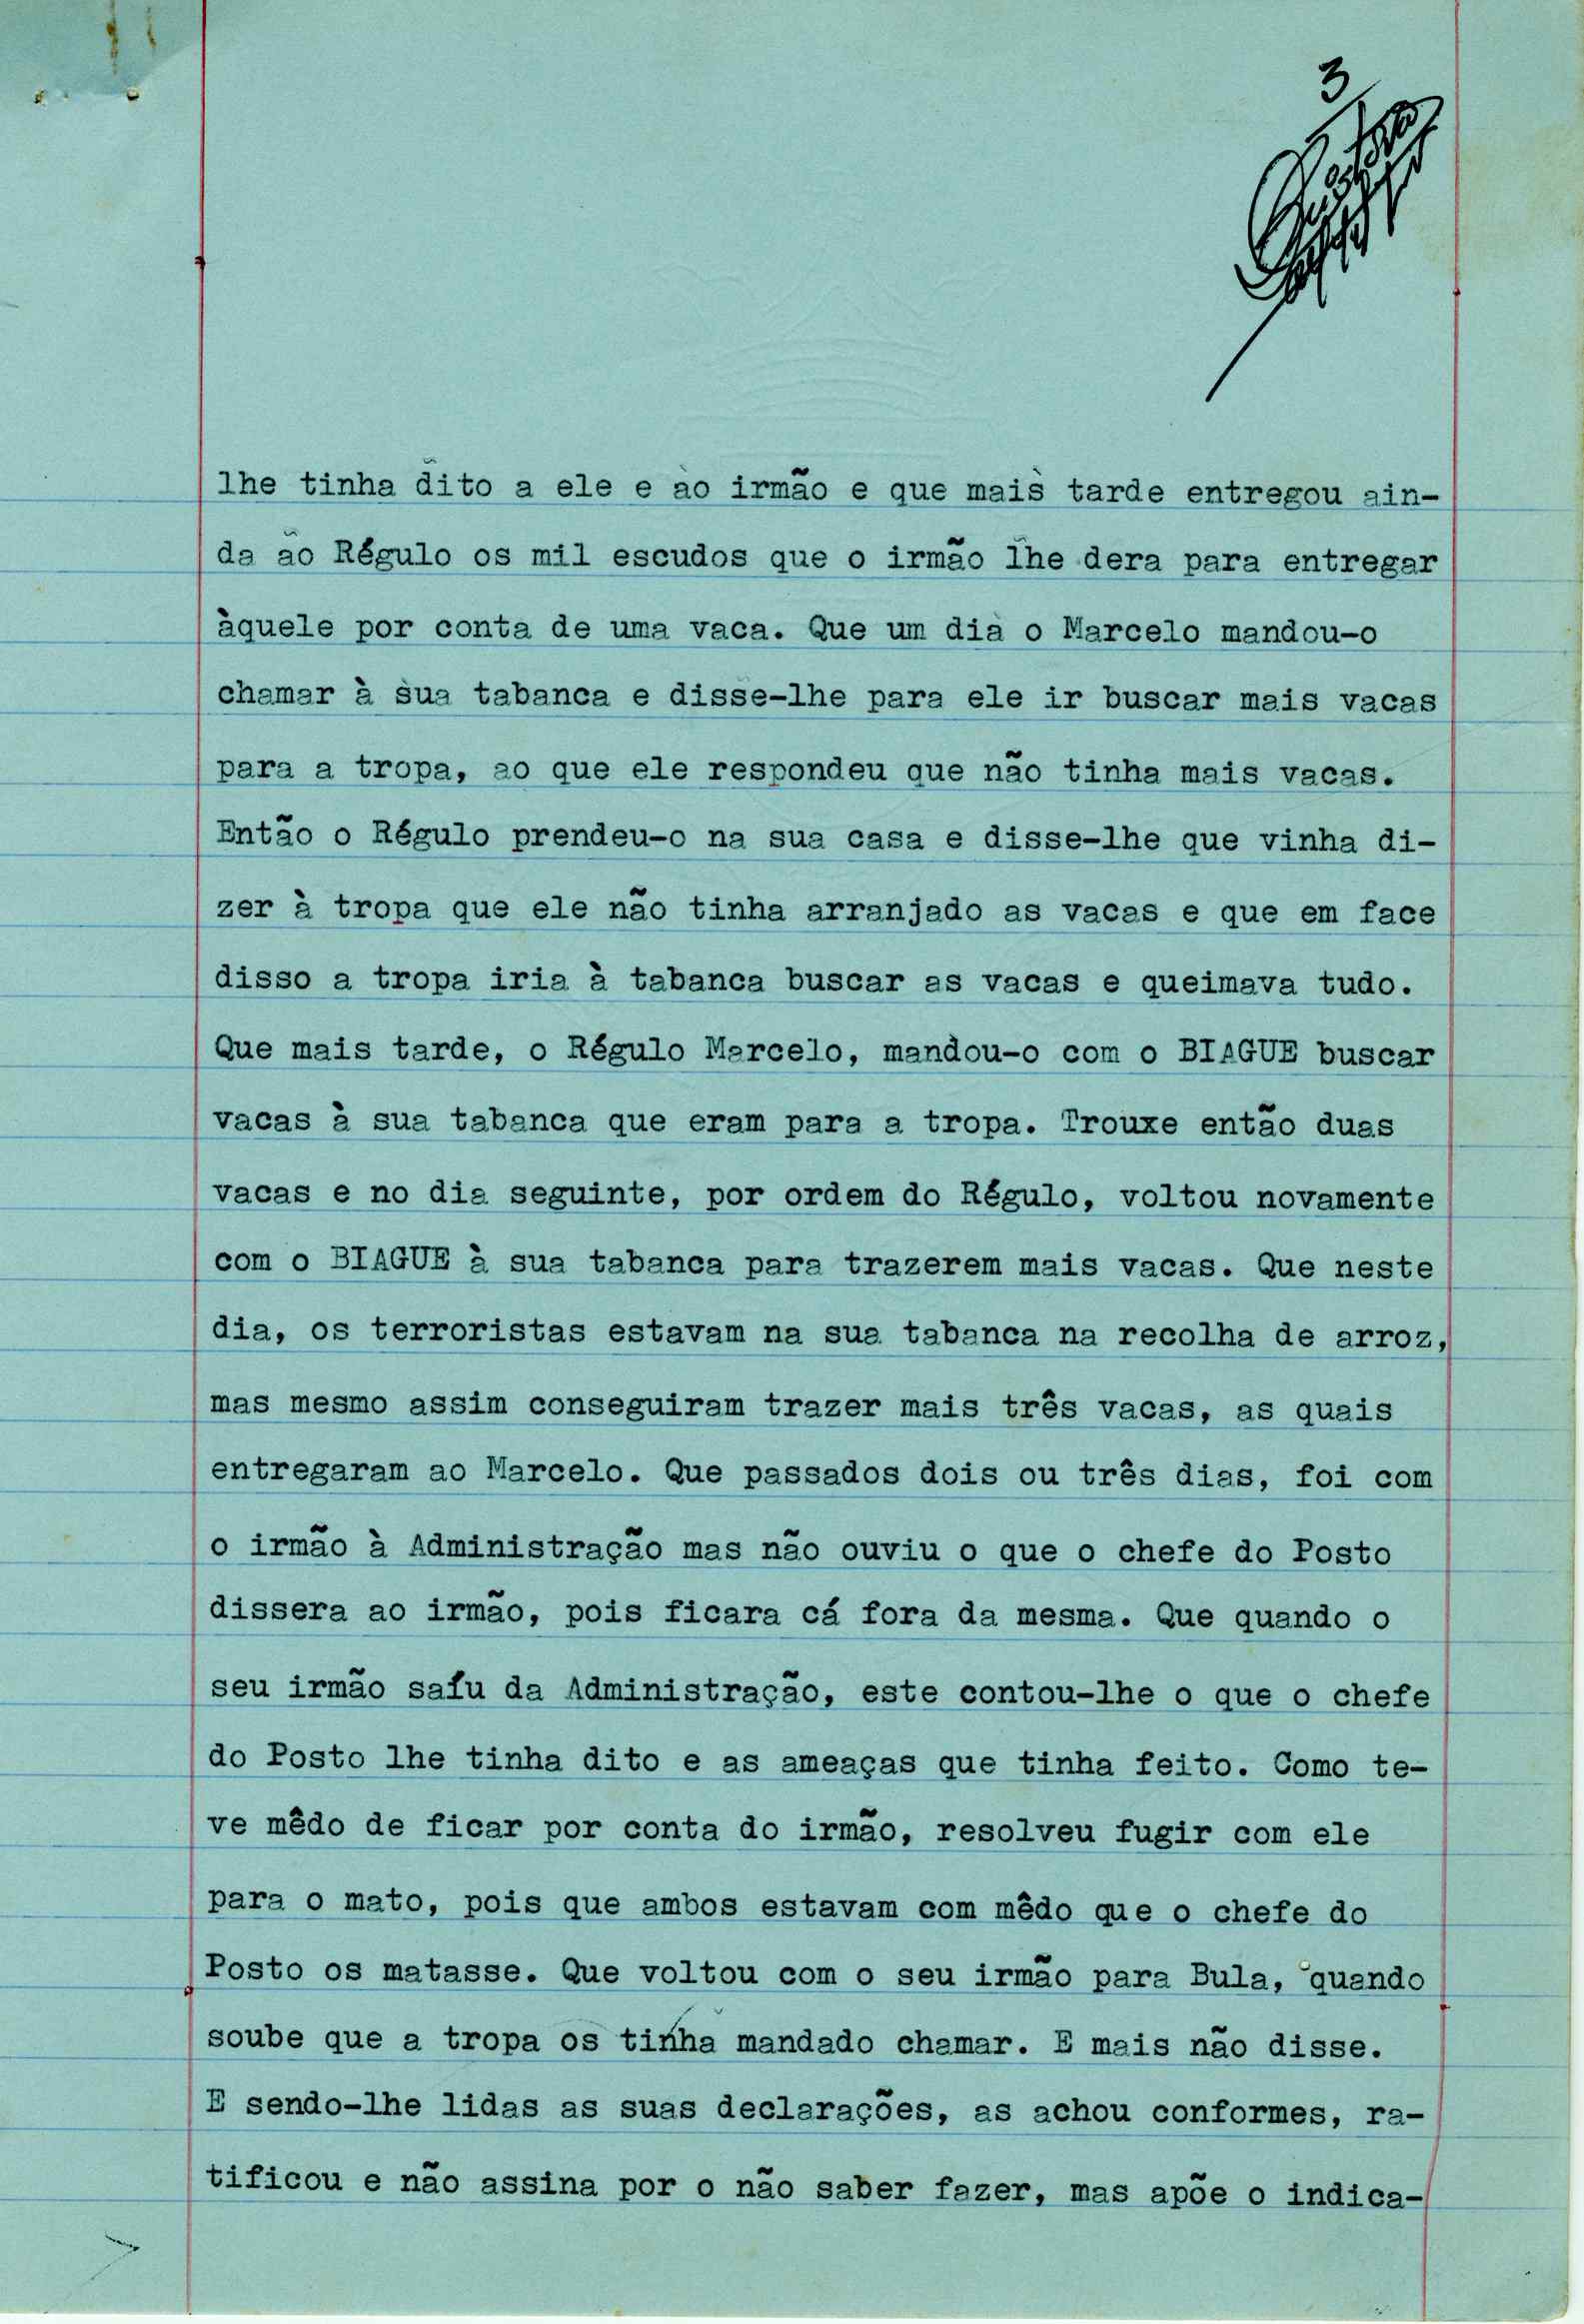 3
lhe tinha dito a ele e ao irmão e que mais tarde entregou ain-
da ao Régulo os mil escudos que o irmão lhe dera para entregar
àquele por conta de uma vaca. Que um dia o Marcelo mandou-o
chamar à sua tabanca e disse-lhe para ele ir buscar mais vacas
para a tropa, ao que ele respondeu que não tinha mais vacas.
Então o Régulo prendeu-o na sua casa e disse-lhe que vinha di-
zer à tropa que ele não tinha arranjado as vacas e que em face
disso a tropa iria à tabanca buscar as vacas e queimava tudo.
Que mais tarde, o Régulo Marcelo, mandou-o com o BIAGUE buscar
vacas à sua tabanca que eram para a tropa. Trouxe então duas
vacas e no dia seguinte, por ordem do Régulo, voltou novamente
com o BIAGUE à sua tabanca para trazerem mais vacas. Que neste
dia, os terroristas estavam na sua tabanca na recolha de arroz,
mas mesmo assim conseguiram trazer mais três vacas, as quais
entregaram ao Marcelo. Que passados dois ou três dias, foi com
o irmão à Administração mas não ouviu o que o chefe do Posto
dissera ao irmão, pois ficara cá fora da mesma. Que quando o
seu irmão saíu da Administração, este contou-lhe o que o chefe
do Posto lhe tinha dito e as ameaças que tinha feito. Como te-
ve mêdo de ficar por conta do irmão, resolveu fugir com ele
para o mato, pois que ambos estavam com mêdo que o chefe do
Posto os matasse. Que voltou com o seu irmão para Bula, quando
soube que a tropa os tinha mandado chamar. E mais não disse.
E sendo-lhe lidas as suas declarações, as achou conformes, ra-
tificou e não assina por o não saber fazer, mas apõe o indica-